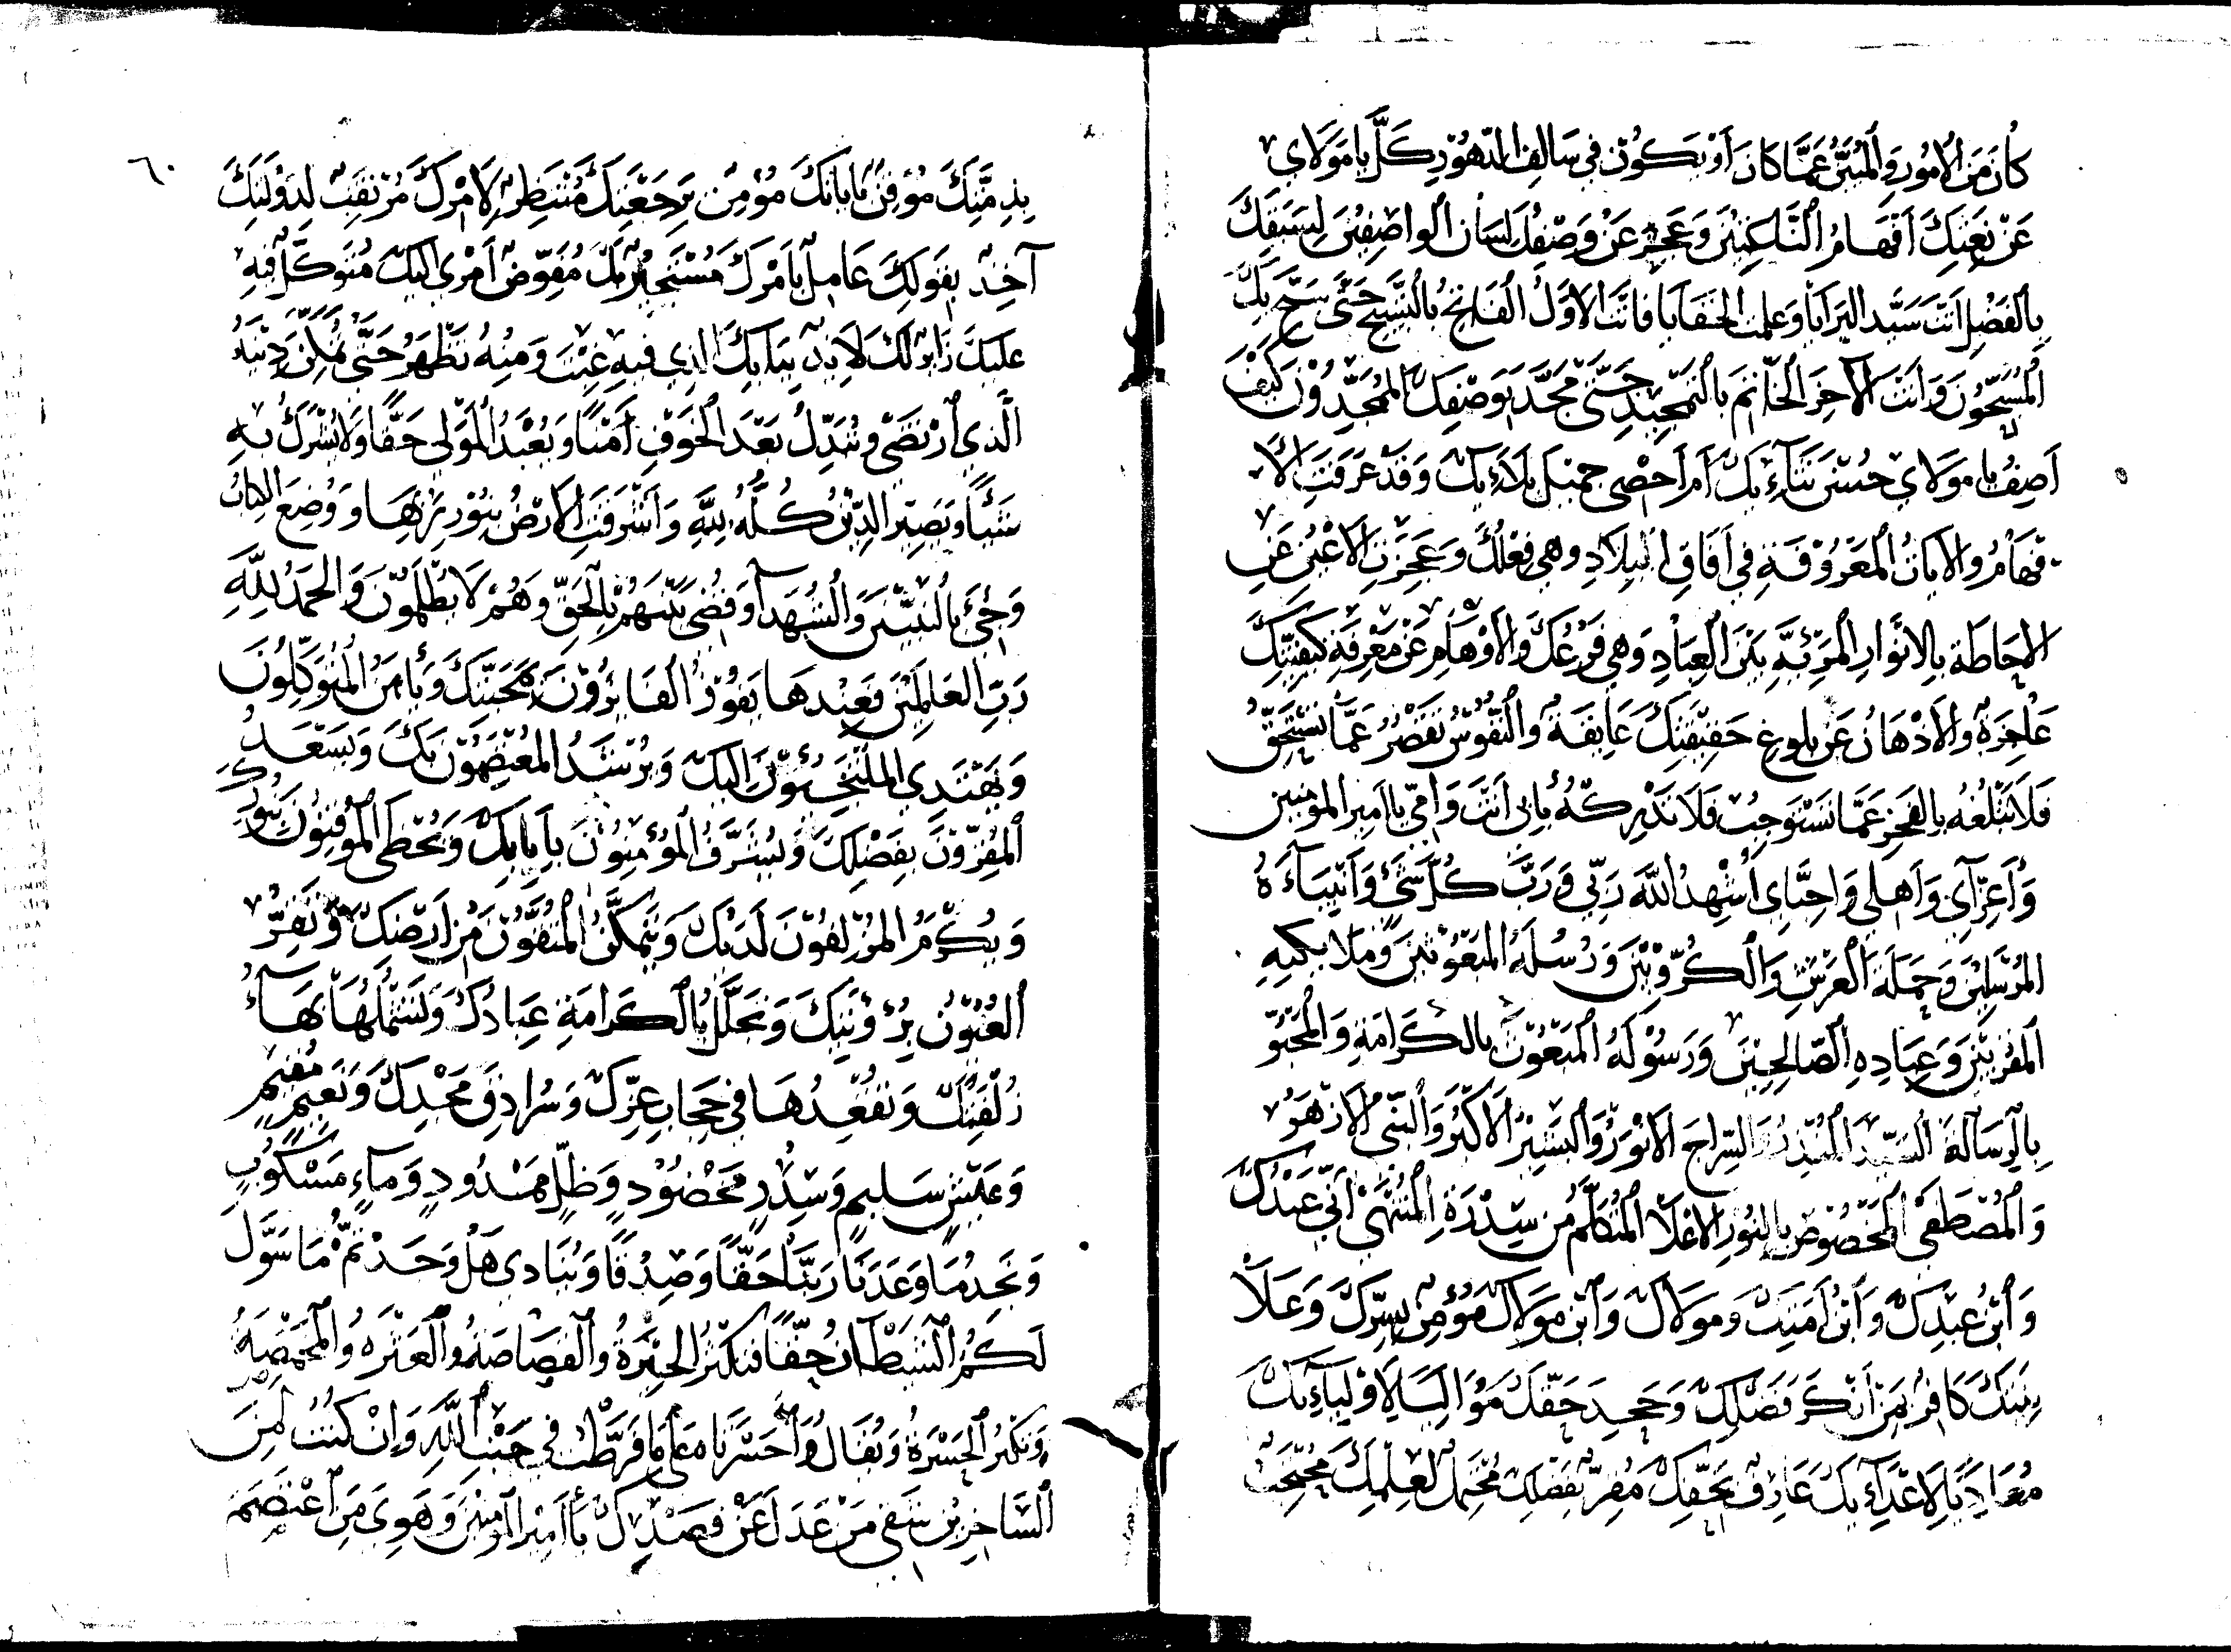 كان من الامور والمبين عما كان أو يكون في سالف الدهور كل يا مولاي
عن نعتك افهام الناكثين وعجز عن وصفك لسان الواصفين لسبقك
بالفضل انت سيد البرايا وعلمك الخفايا فانت الاول الفاتح بالتسبيح حتى سبح بك
المسبحون وانت الآخر الخاتم بالتمجيد حتى مجد بوصفك الممجدون كيف
أصف يا مولاي حسن ثنائك أم أحصى جميل بلائك وقد عرفت الا
فهام والايات المعروفة في آفاق البلاد وهي فعلك وعجزت الاعين عن
الاحاطة بالانوار المرئية بين العباد وهي فرعك والاوهام عن معرفة كيفيتك
عاجزة والاذهان عن بلوغ حقيقتك عايقة والنفوس تقصر عما تستحق
فلا تبلغه بالعجز عما تستوجب فلا تدركه بأبي أنت وأمي يا امير المؤمنين
وأعزآي وأهلي وأحباي أشهد الله ربي ورب كل شيء وأنبيآءه
المرسلين وحملة العرش والكروبيين ورسله المبعوثين وملائكته
المقربين وعباده الصالحين ورسوله المبعوث بالكرامة والمحبو
بالرسالة السيد المنذر والسراج الانور والبشير الاكبر والنبي الازهر
والمصطفى المخصوص بالنور الاعلا المتكلم من سدرة المنتهى اني عبدك
وابن عبدك وابن أمتك ومولاك وابن مولاك مؤمن بسرك وعلا
نيتك كافر بمن أنكر فضلك وجحد حقك موال لاوليائك
معاد لاعدآئك عارف بحقك مقر بفضلك محتمل لعلمك محتجب
٦٠
بذمتك موقن باياتك مؤمن برجعتك منتظر لامرك مرتقب لدولتك
آخذ بقولك عامل بأمرك مستجير بك مفوض أمري اليك متوكل فيه
عليك زاير لك لائذ ببابك الذي فيه غبت ومنه تظهر حتى تمكن دينه
الذي ارتضى وتبدل بعد الخوف أمنا ويعبد المولى حقا ولا يشرك به
شيئا ويصير الدين كله لله وأشرقت الارض بنور ربها ووضع الكتاب
وجئ بالنبيين والشهدآ وقضى بينهم بالحق وهم لا يظلمون والحمد لله
رب العالمين فعندها يفوز الفائزون بمحبتك ويأمن المتوكلون
ويهتدي الملتجئون اليك ويرشد المعتصمون بك ويسعد
المقرون بفضلك ويشرف المؤمنون باياتك ويحظى الموقنون بنورك
ويكرم المزلفون لديك ويتمكن المتقون من أرضك وتقر
العيون برؤيتك وتجلل بالكرامة عبادك ولتشملها بهآء
زلفتك وتقعدها في حجاب عزك وسرادق مجدك ونعيم مقيم
وعيش سليم وسدر مخضود وظل ممدود ومآء مسكوب
ونجد ما وعدنا ربنا حقا وصدقا وينادى هل وجدتم ما سول
لكم الشيطان حقا فتكثر الحيرة والفصاصة والعثرة والمخمصة
وتكثر الحسرة ويقال وأحسرتا على ما فرطت في جنب الله وان كنت لمن
الساخرين شقي من عدل عن قصدك يا أمير المؤمنين وهوى من اعتصم